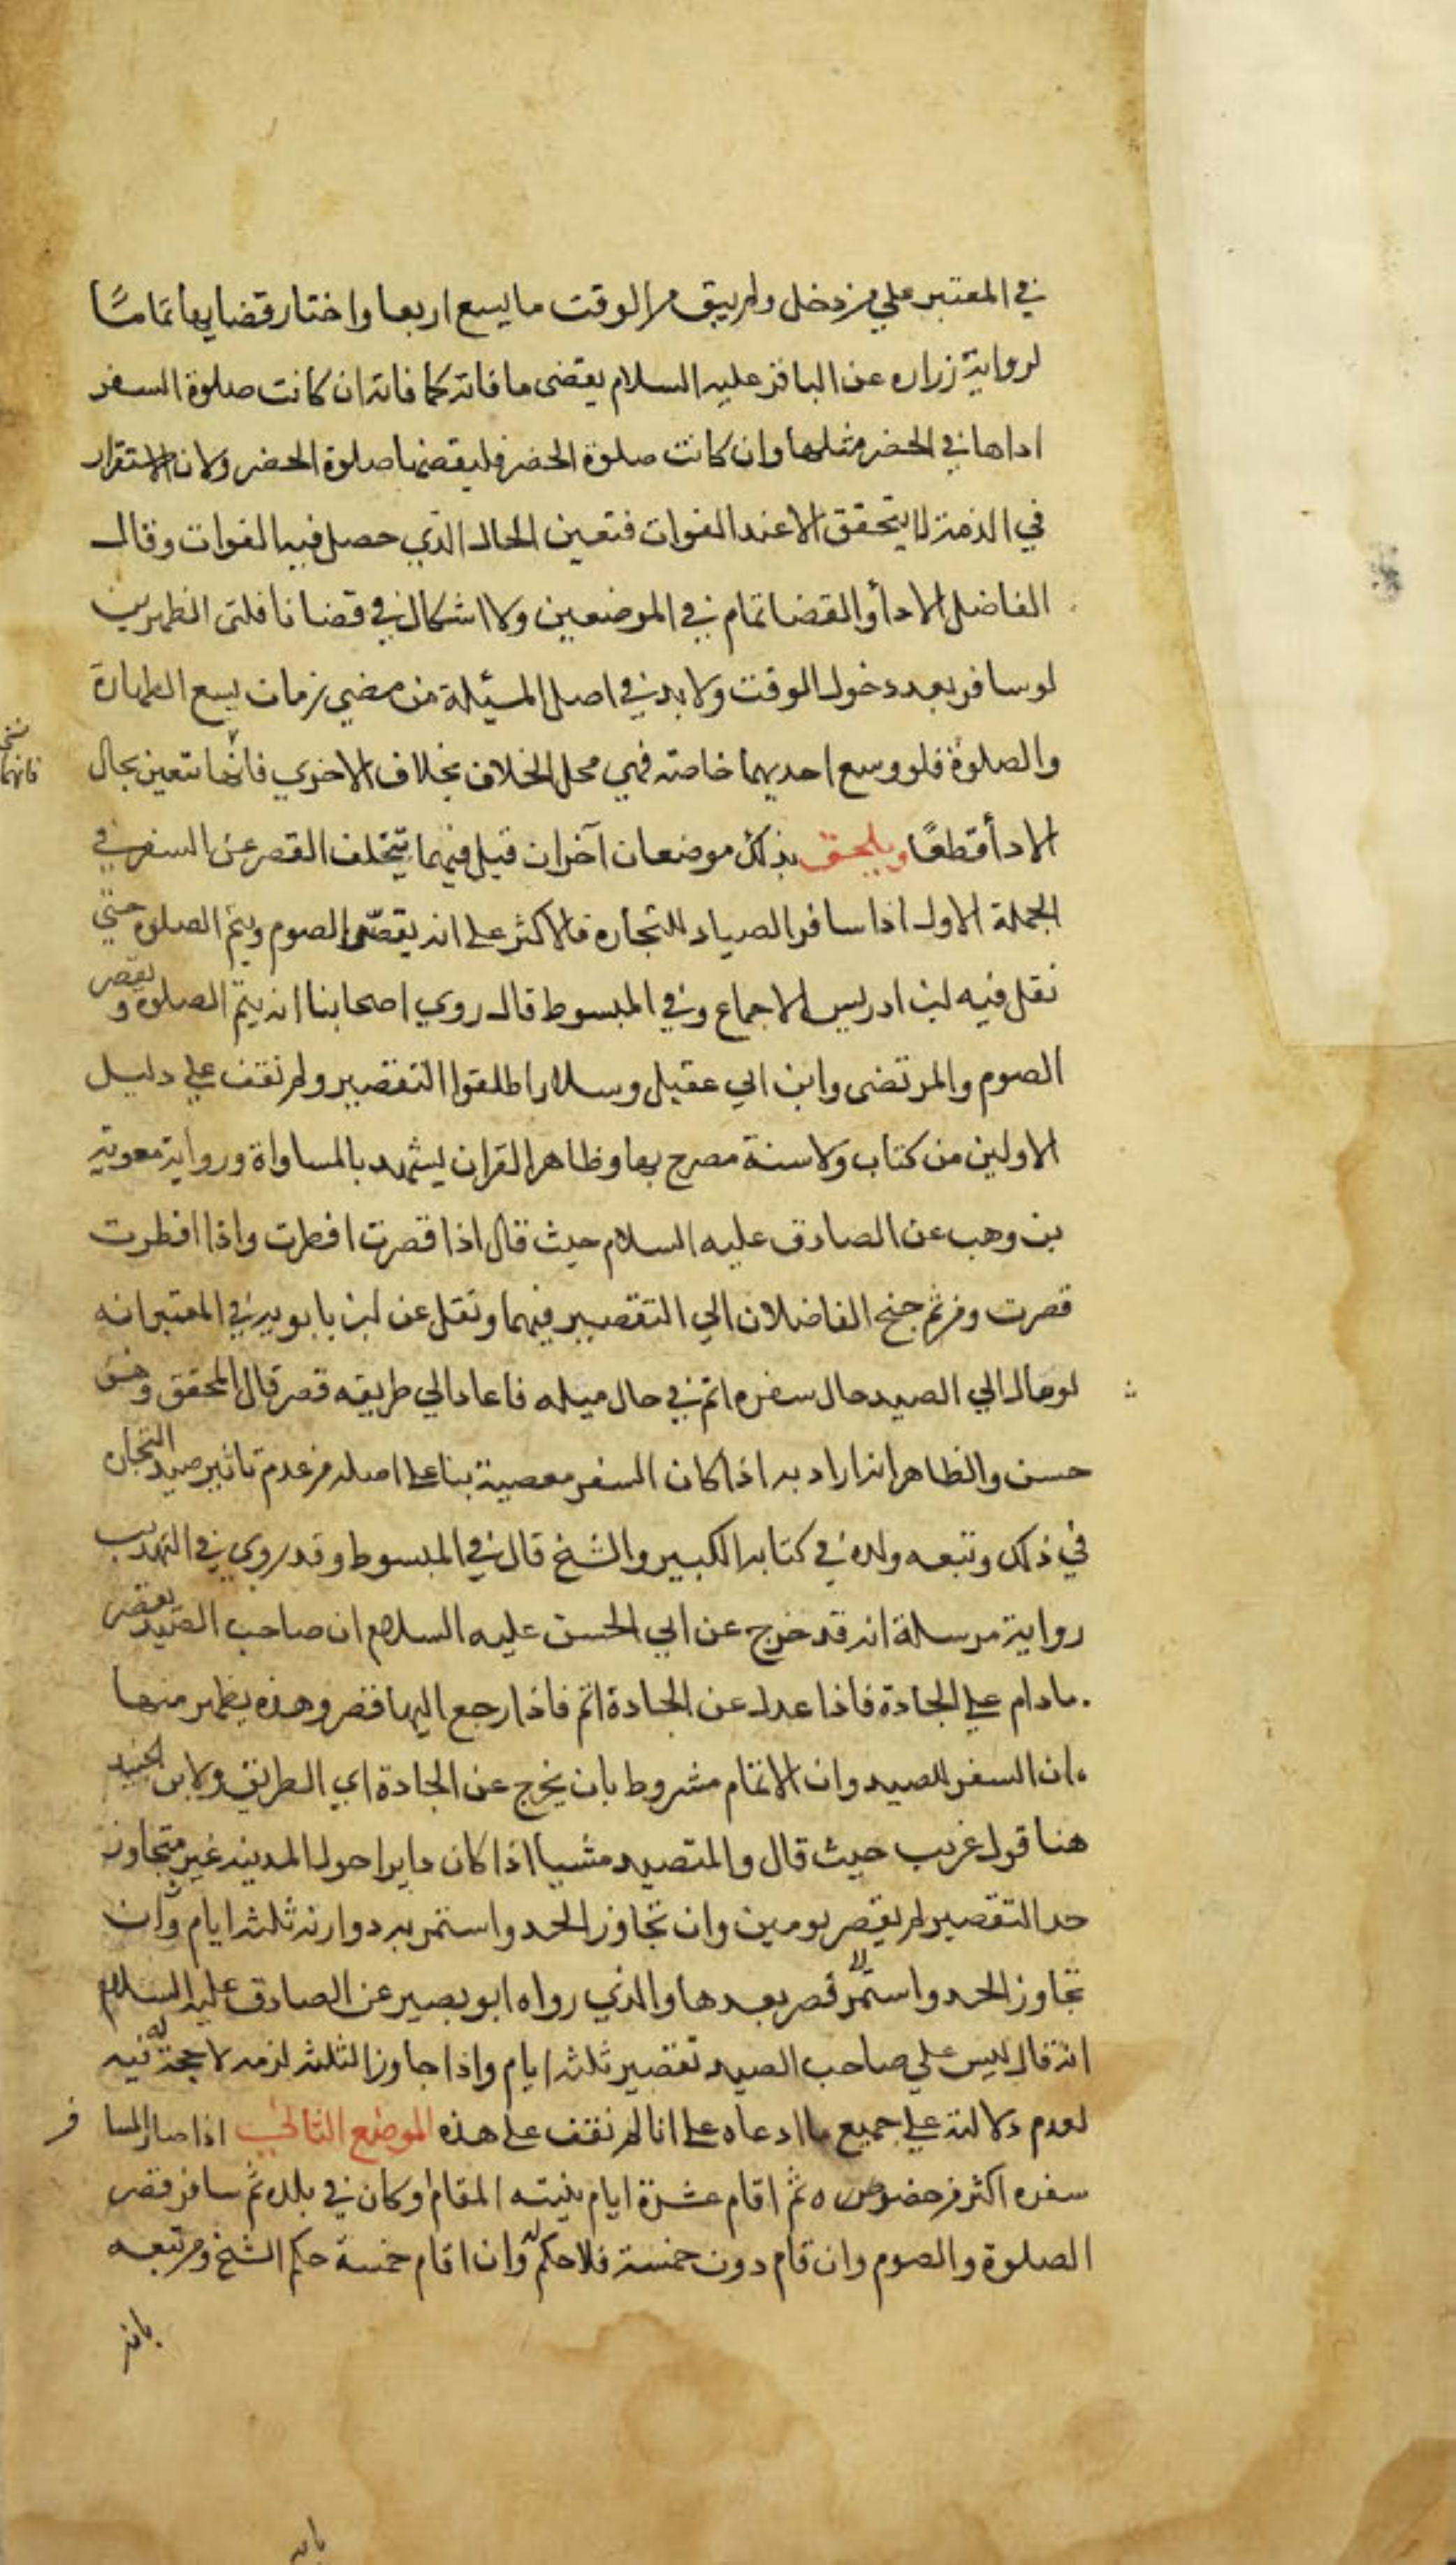 في المعتبر علي من دخل ولم يبق من الوقت ما يسع اربعا واختار قضايها تماما
لرواية زراره عن الباقر عليه السلام يقضى ما فاته كما فاته ان كانت صلوة السفر
اداها في الحضر مثلها وان كانت صلوة الحضر فليقضها صلوة الحضر ولان الاستقرار
في الذمة لا يتحقق الا عند الفوات فتعين الحال الذي حصل فيه الفوات وقال
الفاضل الادأ والقضا تمام في الموضعين ولا اشكال في قضا نافلتى الظهرين
لو سافر بعد دخول الوقت ولا بد في اصل المسئلة من مضي زمان يسع الطهارة
والصلوة فلو وسع احديهما خاصة فهي محل الخلاف بخلاف الاخري فانها تتعين بحال
فانهما
الادأ قطعًا ويلحق بذلك موضعان آخران قيل فيهما يتخلف القصر عن السفر في
الجملة الاول اذا سافر الصياد للتجاره فالاكثر على انه يقصّر الصوم ويتم الصلوة حتي
نقل فيه ابن ادريس الاجماع وفي المبسوط قال روي اصحابنا انه يتم الصلوة و يقصر
الصوم والمرتضى وابن ابي عقيل وسلار اطلقوا التقصير ولم نقف علي دليل
الاولين من كتاب ولا سنة مصرح بها وظاهر القران يشهد بالمساواة ورواية معوية
بن وهب عن الصادق عليه السلام حيث قال اذا قصرت افطرت واذا افطرت
قصرت ومن ثم جنح الفاضلان الي التقصير فيهما ونقل عن ابن بابويه في المعتبر انه
لو مال الي الصيد حال سفره اتم في حال ميله فاعاد الي طريقه قصر قال المحقق وهو
حسن والظاهر انه اراد به اذا كان السفر معصية بنا على اصله من عدم تاثير صيد التجاره
في ذلك وتبعه ولده في كتابه الكبير والشيخ قال في المبسوط وقد روي في التهذيب
رواية مرسلة انه قد خرج عن ابي الحسن عليه السلام ان صاحب الصيد يقصر
ما دام علي الجادة فاذا عدل عن الجادة اتم فاذا رجع اليها قصر وهذه يظهر منها
ان السفر للصيد وان الاتمام مشروط بان يخرج عن الجادة اي الطريق ولابن الجنيد
هنا قول غريب حيث قال والمتصيد مشيا اذا كان دايرا حول المدينة غير متجاوز
حد التقصير لم يقصر يومين وان تجاوز الحد واستمر به دوارنه ثلثة ايام وان
تجاوز الحد واستمر قصر بعدها والذي رواه ابو بصير عن الصادق عليه السلام
انه قال ليس علي صاحب الصيد تقصير ثلثة ايام واذا جاوز الثلثة لزمه لا حجة له فيه
لعدم دلالته علي جميع ما ادعاه على انا لم نقف على هذه الموضع الثاني اذا صار المسافر
سفره اكثر من حضوره ثم اقام عشرة ايام بنيته المقام او كان في بلده ثم سافر قصر
الصلوة والصوم وان قام دون خمسة فلا حكم له وان اقام خمسة حكم الشيخ ومن تبعه